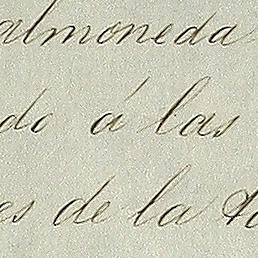 almoneda
do á las
es de la